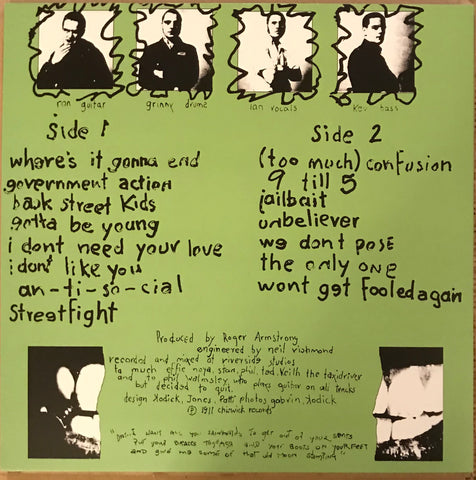 ron guitar
grinny drums
Ian vocals
Kev bass
Side 1
where's it gonna end
government action
back street Kids
gotta be young
i dont need your love
i dont like you
an-ti-so-cial
streetfight
Side 2
(too much) confusion
9 till 5
jailbait
unbeliever
we dont pose
the only one
wont get fooled again
Produced by Roger Armstrong
engineered by neil richmond
recorded and mixed at riverside studios
ta much effie nora, stan, phil, ted, Keith the taxidriver
and to phil walmsley who plays guitar on all tracks
but decided to quit.
design Kodick, Jones, photos Kodick
℗ © chiswick records
want all you to get out of your seats
put your BRACES TOGETHER AND YOUR BOOTS ON YOUR FEET
and give me some of that old moon stomping"